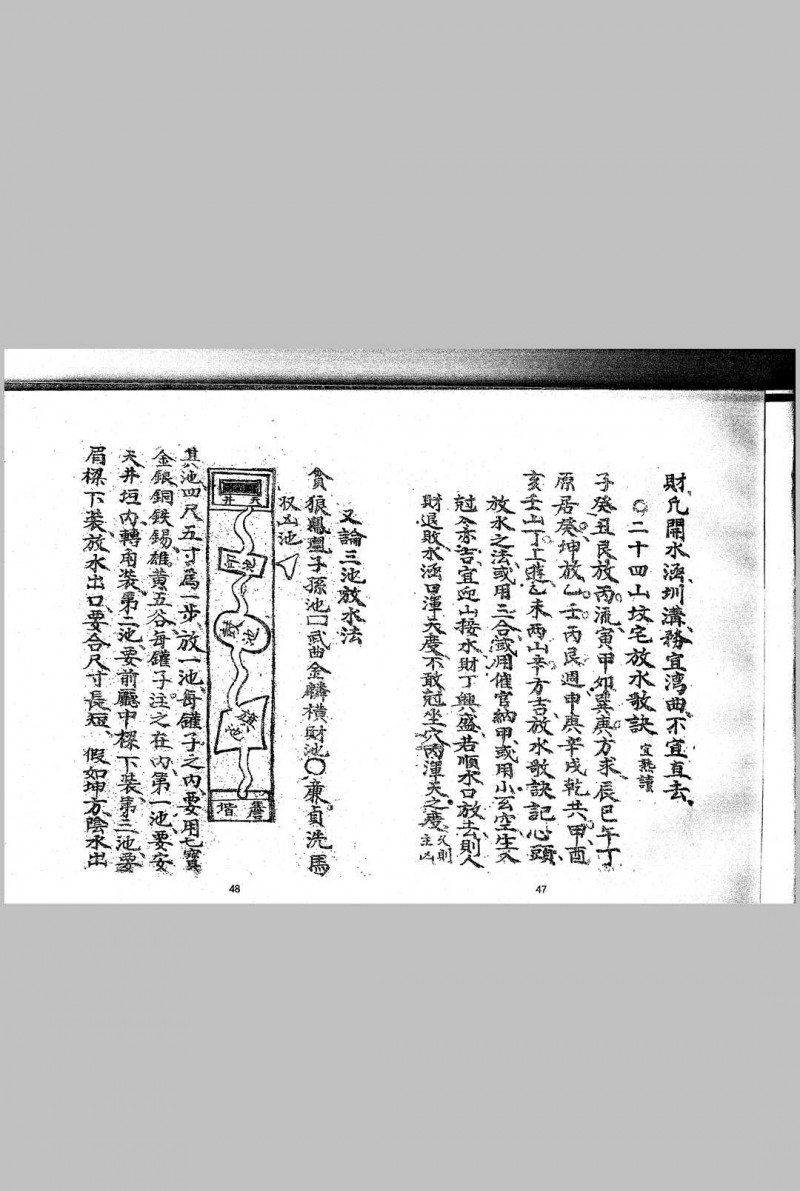 財凡開水涵圳溝務宜湾曲不宜直去
○二十四山坟宅放水歌訣宜熟讀
子癸丑艮放丙流寅甲卯巽庚方求辰巳午丁
原居癸坤放乙壬丙艮週申庚辛戌乾共甲酉
亥壬山丁上遊乙未两山辛方吉放水歌訣記心頭
放水之法或用三合或用催官納甲或用小玄空生入
尅入亦吉宜迎山接水財丁興盛若順水口放去則人
財退敗水涵口渾天度不敢尅坐穴内渾天之度欠則主凶
47
又論三池放水法
貪狼鳳凰子孫池 武曲金麟橫財池○廉貞洗馬
双池
天井
池
池
池
階
其池四尺五寸為一步放一池每罐子之内要用七寶
金銀銅铁錫雄黄五谷每罐子注之在内第一池要安
天井垣内轉角装第二池要前廳中樑下装第三池要
眉樑下装放水出口要合尺寸長短 假如坤方陰水出
48